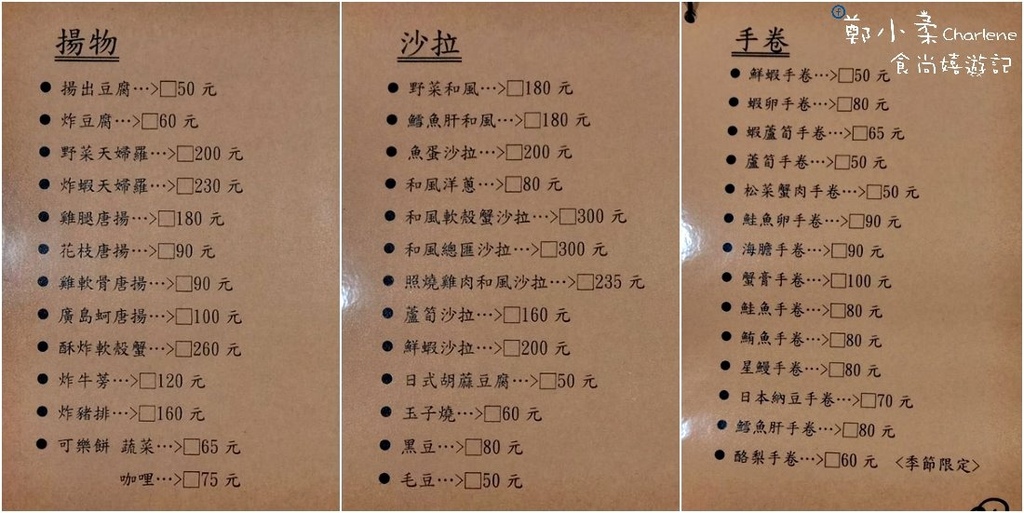 揚物
● 揚出豆腐…>□50 元
● 炸豆腐…>□60 元
● 野菜天婦羅…>□200 元
● 炸蝦天婦羅…>□230 元
● 雞腿唐揚…>□180 元
● 花枝唐揚…>□90 元
● 雞軟骨唐揚…>□90 元
● 廣島蚵唐揚…>□100 元
● 酥炸軟殼蟹…>□260 元
● 炸牛蒡…>□120 元
● 炸豬排…>□160 元
● 可樂餅 蔬菜…>□65 元
咖哩…>□75 元
沙拉
● 野菜和風…>□180 元
● 鱈魚肝和風…>□180 元
● 魚蛋沙拉…>□200 元
● 和風洋蔥…>□80 元
● 和風軟殼蟹沙拉…>□300 元
● 和風總匯沙拉…>□300 元
● 照燒雞肉和風沙拉…>□235 元
● 蘆筍沙拉…>□160 元
● 鮮蝦沙拉…>□200 元
● 日式胡蔴豆腐…>□50 元
● 玉子燒…>□60 元
● 黑豆…>□80 元
● 毛豆…>□50 元
手卷
● 鮮蝦手卷…>□50 元
● 蝦卵手卷…>□80 元
● 蝦蘆筍手卷…>□65 元
● 蘆筍手卷…>□50 元
● 松菜蟹肉手卷…>□50 元
● 鮭魚卵手卷…>□90 元
● 海膽手卷…>□90 元
● 蟹膏手卷…>□100 元
● 鮭魚手卷…>□80 元
● 鮪魚手卷…>□80 元
● 星鰻手卷…>□80 元
● 日本納豆手卷…>□70 元
● 鱈魚肝手卷…>□80 元
● 酪梨手卷…>□60 元 <季節限定>
鄭小柔Charlene
食尚嬉遊記